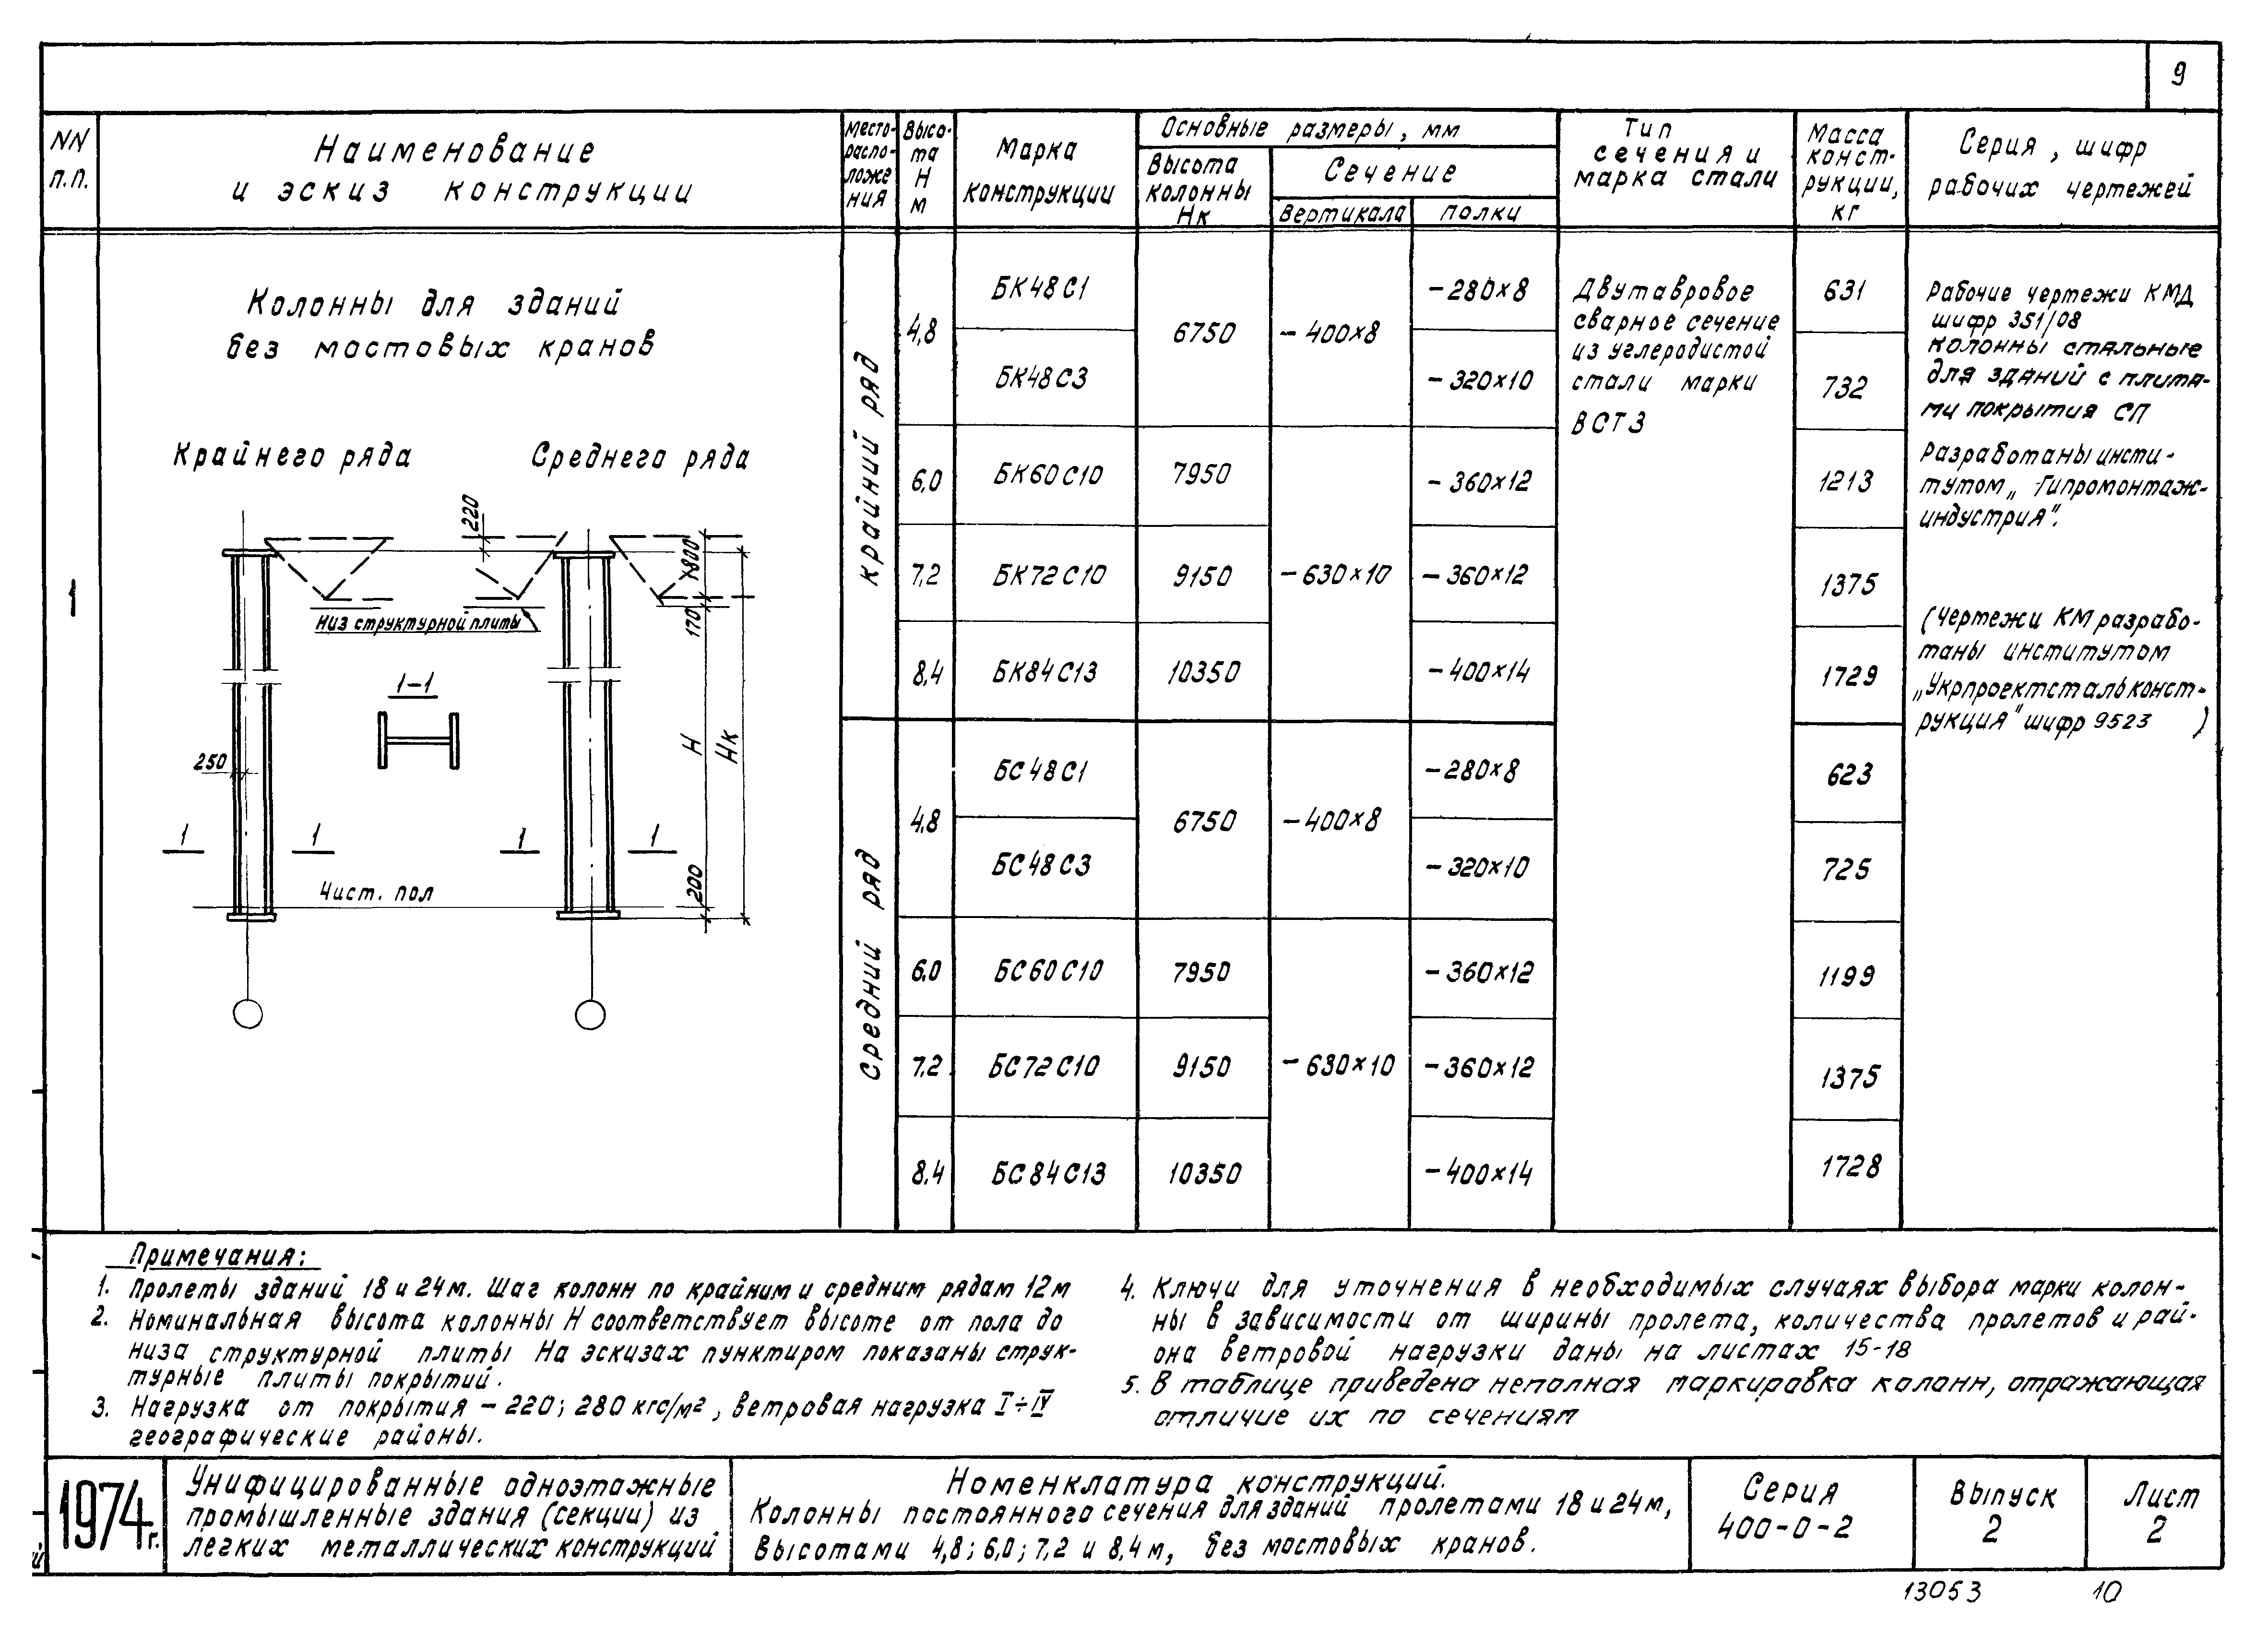 9
NN п.п.
Наименование
и эскиз конструкции
место-
распо-
ложе
ния
Высо-
та
Н
м
Марка
конструкции
Основные размеры, мм
Высота
колонны
Нк
Сечение
Вертикала
полки
Тип
сечения и
марка стали
Масса
конст-
рукции,
кг
Серия, шифр
рабочих чертежей
1
Колонны для зданий
без мостовых кранов
Крайнего ряда
Среднего ряда
220
1800
170
Низ структурной плиты
1-1
250
Н
Нк
1 1 1 1
200
Чист. пол
Крайний ряд
4,8 БК48С1 6750 -400×8 -280×8 631
БК48С3 -320×10 732
6,0 БК60С10 7950 -360×12 1213
7,2 БК72С10 9150 -630×10 -360×12 1375
8,4 БК84С13 10350 -400×14 1729
Средний ряд
4,8 БС48С1 6750 -400×8 -280×8 623
БС48С3 -320×10 725
6,0 БС60С10 7950 -360×12 1199
7,2 БС72С10 9150 -630×10 -360×12 1375
8,4 БС84С13 10350 -400×14 1728
Двутавровое
сварное сечение
из углеродистой
стали марки
ВСТ3
Рабочие чертежи КМД
шифр 351/08
колонны стальные
для зданий с плита-
ми покрытия СП
Разработаны инсти-
тутом „Гипромонтаж-
индустрия".
(чертежи КМ разрабо-
таны институтом
„Укрпроектстальконст-
рукция" шифр 9523 )
Примечания:
1. Пролеты зданий 18 и 24м. Шаг колонн по крайним и средним рядам 12м
2. Номинальная высота колонны Н соответствует высоте от пола до
низа структурной плиты На эскизах пунктиром показаны струк-
турные плиты покрытий.
3. Нагрузка от покрытия - 220; 280 кгс/м², ветровая нагрузка I÷IV
географические районы.
4. Ключи для уточнения в необходимых случаях выбора марки колон-
ны в зависимости от ширины пролета, количества пролетов и рай-
она ветровой нагрузки даны на листах 15-18
5. В таблице приведена неполная маркировка колонн, отражающая
отличие их по сечениям
1974г.
Унифицированные одноэтажные
промышленные здания (секции) из
легких металлических конструкций
Номенклатура конструкций.
Колонны постоянного сечения для зданий пролетами 18 и 24м,
высотами 4,8; 6,0; 7,2 и 8,4м, без мостовых кранов.
Серия
400-0-2
Выпуск
2
Лист
2
13053 10